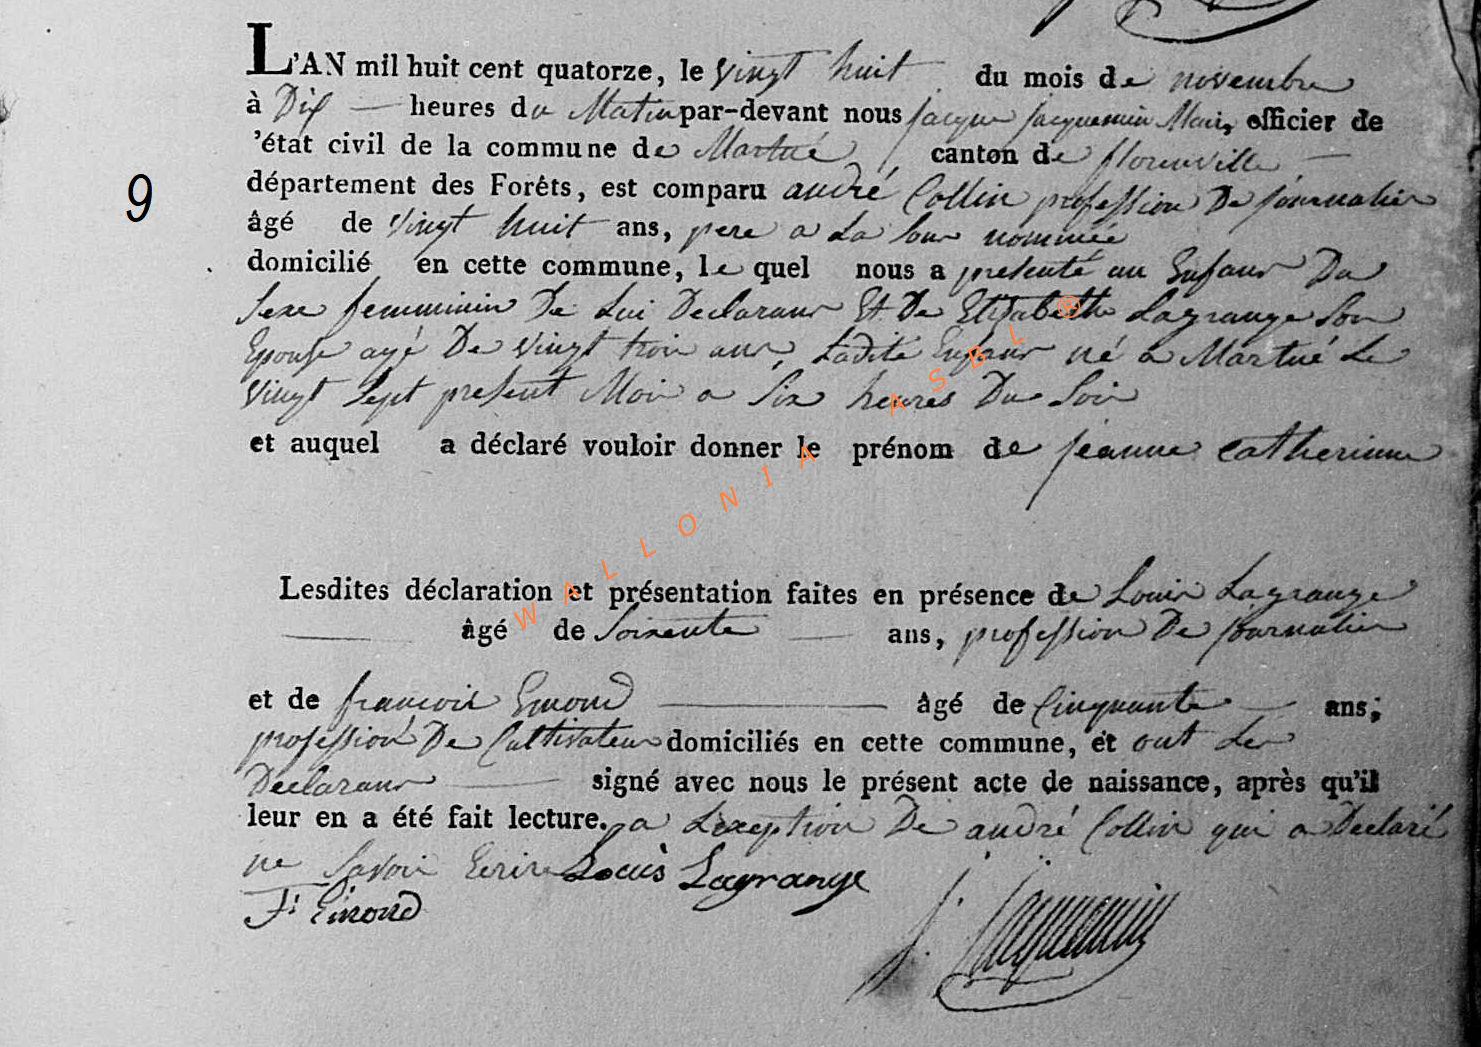 L'AN mil huit cent quatorze, le vingt huit du mois de novembre
à Dix heures du Matin par-devant nous jacque jacquemin Maire, officier de
'état civil de la commune de Martué canton de florenville
département des Forêts, est comparu andré Collin profession De journalier
9
âgé de vingt huit ans, pere a La nommée
domicilié en cette commune, le quel nous a presenté un Enfant Du
sexe femminin De Lui Declarant Et De Elisabeth Lagrange Son
Epouse agé De vingt trois ans, Ladite Enfant né a Martué Le
vingt sept present Mois a Six heures Du Soir
et auquel a déclaré vouloir donner le prénom de jeanne catherinne
Lesdites déclaration et présentation faites en présence de Louis Lagrange
âgé de Soixente ans, profession De journalier
et de francois Emond âgé de Cinquante ans;
profession De Cultivateur domiciliés en cette commune, et ont Les
Declarant signé avec nous le présent acte de naissance, après qu'il
leur en a été fait lecture. a L'exeption De andré Collin qui a Declaré
ne Savoir Ecrire Louis Lagrange
F: Emond
J. Jacquemin
WALLONIA ASBL ®